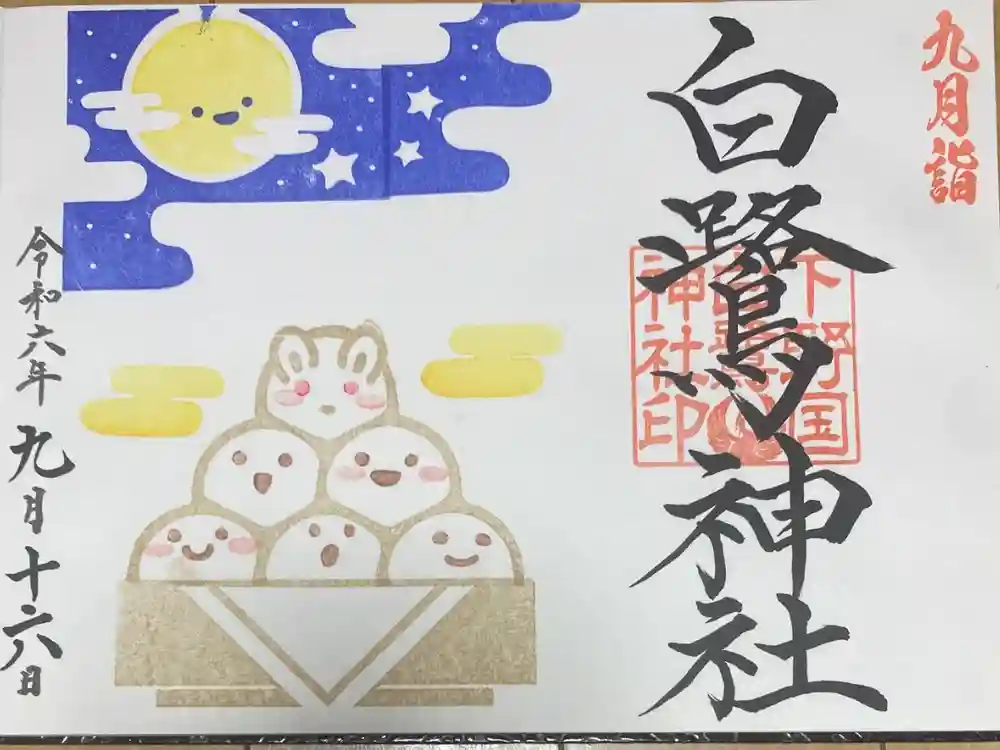 九月詣
白鷺神社
下野国
白鷺
神社印
令和六年九月十六日